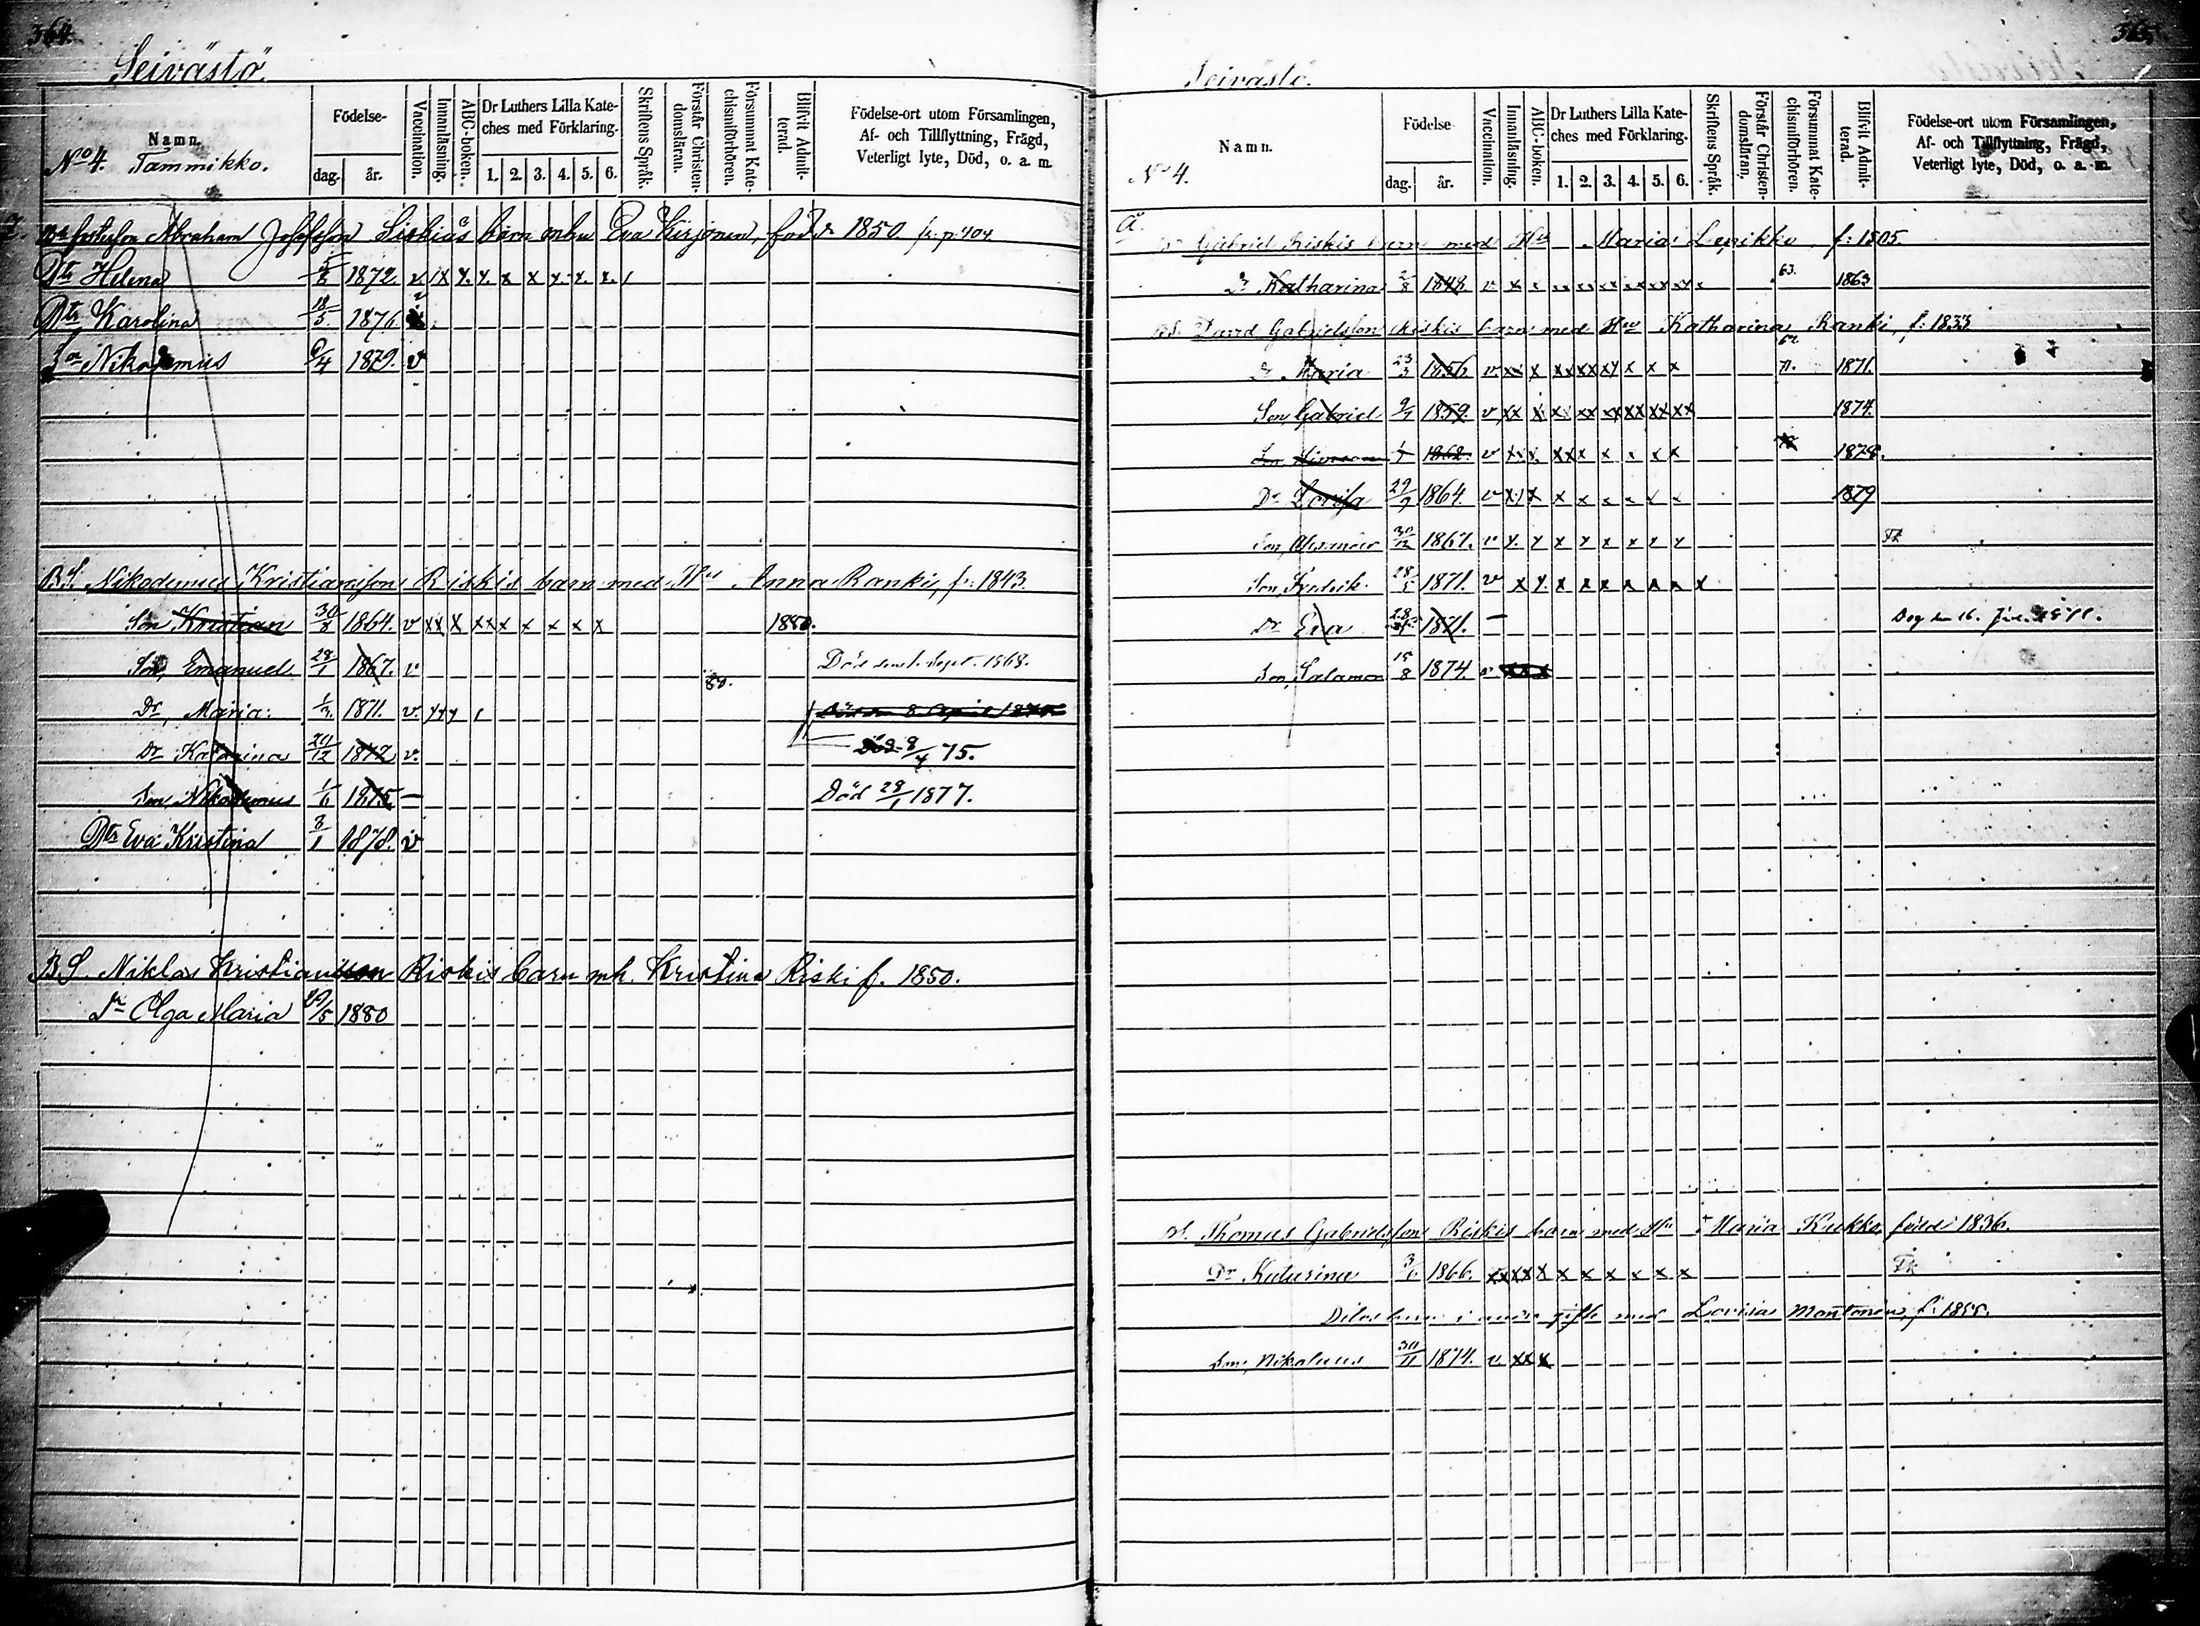 364.
Seivästö.
Namn.
No 4. Tammikko.
Födelse-
dag. år.
Vaccination.
Innanläsning.
ABC-boken.
Dr Luthers Lilla Kate-
ches med Förklaring.
1. 2. 3. 4. 5. 6.
Skriftens Språk.
Förstår Christen-
domsläran.
Försummat Kate-
chismiförhören.
Blifvit Admit-
terad.
Födelse-ort utom Församlingen,
Af- och Tillflyttning, Frägd,
Veterligt lyte, Död, o. a. m.
Abraham Josefsson Siskias barn mhu Eva Kirjonen, född 1850. fr. p. 404
Dtr Helena 1872. v x x x x x x x x
Dtr Karolina 18/5 1876. v
Son Nikodemus 9/4 1879. v
BS. Nikodemus Kristiansson Riskis barn med Hu Anna Ranki, f. 1843.
Son Kristian 30/8 1864. v xx x xx x x x x x 1880.
Son, Emanuel 28/1 1867. v Död den 1. Sept. 1868.
Dr, Maria 1/3 1871. v. x x x 80. Död den 8 April 1875
Dr Katarina 20/12 1872 v. Död 8/4 75.
Son, Nikodemus 1/6 1875 — Död 28/1 1877.
Dtr Eva Kristina 8/1 1878. v
BS. Niklas Kristiansson Riskis barn mh. Kristina Riski f. 1850.
Dr Olga Maria 29/5 1880
365.
Seivästö.
Namn.
No 4.
Födelse
dag. år.
Vaccination.
Innanläsning.
ABC-boken.
Dr Luthers Lilla Kate-
ches med Förklaring.
1. 2. 3. 4. 5. 6.
Skriftens Språk.
Förstår Christen-
domsläran,
Försummat Kate-
chismiförhören.
Blifvit Admit-
terad.
Födelse-ort utom Församlingen,
Af- och Tillflyttning, Frägd,
Veterligt lyte, Död, o. a. m.
a.
Gabriel Riskis barn med Hu Maria Lepikko, f: 1805.
Dr Katharina 2/8 1848 v x 63. 1863
David Gabrielsson Riskis barn med Hu Katharina Ranki, f: 1833
Dr Maria 23/3 1856 v. xx x xx xx xy x x x 71. 1871.
Son, Gabriel 1859. v xx x x xx xx xx xx xx 1874.
Son 1862. v xx x xx x x x x x 1878.
Dr Lovisa 29/9 1864. v xx x x x 1879
Son, Alexander 30/12 1867. v x x x x x x x x Fk
Son, Fredrik 28/5 1871. v x x x x x x x x x
Dr Eva 1871. — Dog den 16. 1871.
Son, Salamon 15/8 1874. v xxx
Thomas Gabrielsson Riskis barn med Hu Maria Kukko, född 1836.
Dr Katarina 3/6 1866. xx xx x x x x x x x Fk
Dito barn i andra gifte med Lovisa Montonen, f: 1855.
Son, Nikolaus 30/11 1874. v. xx x